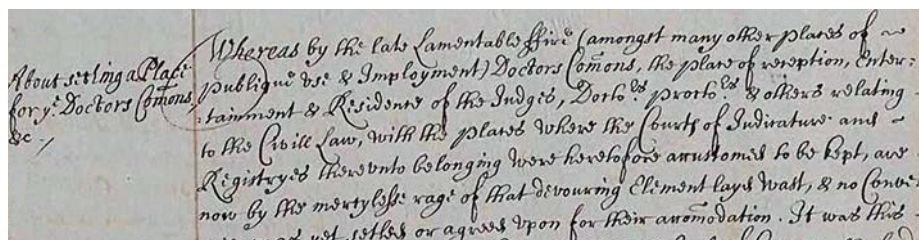 About setling a Place
for ye. Doctors Com̃ons
&c /
Whereas by the late Lamentable ffire (amongst many other places of
publique use & Imployment) Doctors Com̃ons, the place of reception, Enter:
:tainment & Residence of the Judges, Docto:rs Procto:rs & others relating
to the Civill Law, with the places where the Courts of Judicature and
Registryes thereunto belonging were heretofore accustomed to be kept, are
now by the mercylesse rage of that devouring Element layd wast, & no Conve
yet setled or agreed upon for their accom̃odation. It was this